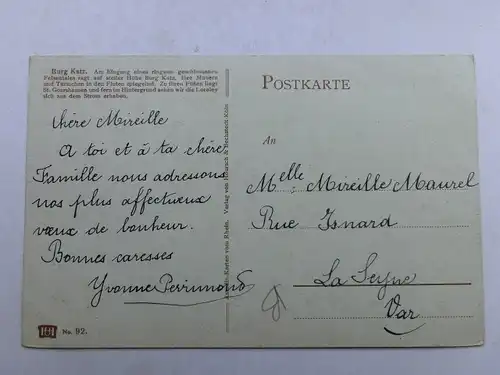 Burg Katz. Am Eingang eines ringsum geschlossenen
Felsentales ragt auf steiler Höhe Burg Katz, ihre Mauern
und Türmchen in den Fluten spiegelnd. Zu ihren Füßen liegt
St. Goarshausen und fern im Hintergrund sehen wir die Loreley
sich aus dem Strom erheben.
Chère Mireille
A toi et à ta chère
Famille nous adressons
nos plus affectueux
vœux de bonheur.
Bonnes caresses
Yvonne Perrimond
No. 92.
Karten vom Rhein. Verlag von Hoursch & Bechstedt Köln
POSTKARTE
An
Melle. Mireille Maurel
Rue Isnard
La Seyne
Var